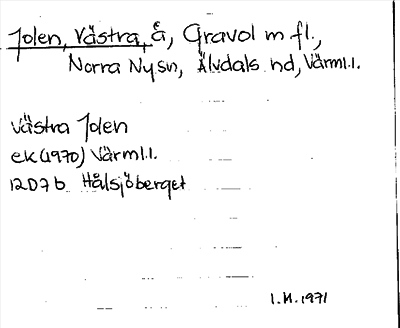 Jolen, Västra, å, Gravol m fl.,
Norra Nysn, Älvdals hd, Värml.l.
Västra Jolen
ek(1970) Värml.l.
12D7b Hålsjöberget
I.H.1971